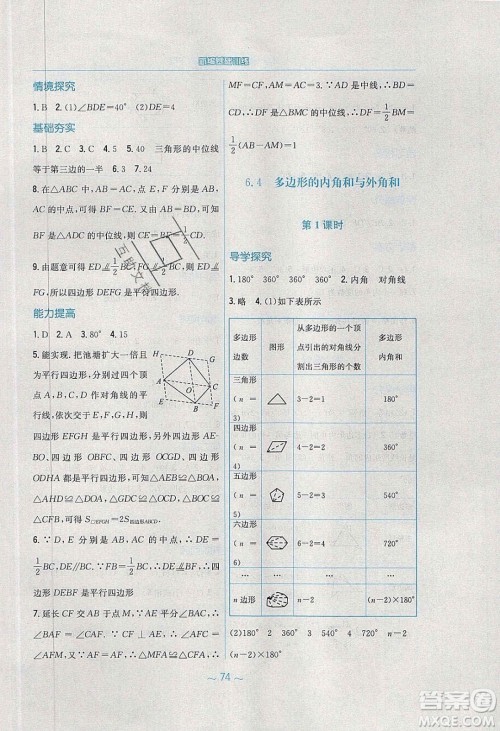 新编基础训练
情境探究
1. B 2. (1)∠BDE=40° (2)DE=4
基础夯实
1. B 2. C 3. C 4. 5 5. 40 三角形的中位线
等于第三边的一半 6. 3 7. 24
8. 在△ABC 中，点 E，F 分别是 AB，AC 的中
点，可得 EF∥BC，且 EF=1/2BC
9. 由题意可得 ED∥1/2BC，FG∥1/2BC，∴ED
∥FG，所以四边形 DEFG 是平行四边形.
能力提高
1. D 2. A 3. 80° 4. 15
5. 能实现. 把池塘扩大一倍且
为平行四边形，分别过 A，B，
C，D 作对角线的平行
线，依次交于 EFGH 四点，
如图，则四边形 EFGH 是平行四边形. 同理，
四边形 AOBE 四边形 OBFC 四边形 OCGD 四边形
ODHA 都是平行四边形. 可证 △AOD≌
△AHD △AOB≌△AEB △BOC≌△BFC △DOC
≌△DGC，∴S▱EFGH=2S四边形ABCD.
6. ∵D，E，F 分别是 AB，AC，BC 的中点，∴DE
∥1/2BC. DF∥1/2AC. 又∵AB=AC，∴DE=
1/2BC=BF. ∴四边形 DEBF 是平行四边形
7. 延长 CF 交 AB 于点 M，∵∠1=∠2，AF⊥CF
AF=AF ∴△AMF≌△ACF，∴AM=AC，
MF=CF. ∵AF 是△AMC 的中线，∵D 是 BC
中点，∴DF 是△BMC 的中位线，∴DF=1/2BM
=1/2(AB−AM)=1
6.4 多边形的内角和与外角和
第 1 课时
导学探究
1. 180° 360° 360° 360° 2. 内角 对角线
3. 略 4. (1)如下表所示
多边形边数 图形 从多边形的一个顶点引出的对角线分割出三角形的个数 多边形内角和
三角形(n=3) 3−2=1 180°
四边形(n=4) 4−2=2 360°
五边形(n=5) 5−2=3 540°
六边形(n=6) 6−2=4 720°
… … … …
n 边形 n−2 (n−2)×180°
(2)180° 360° 540° 720° (n−2)×180°
(n−2)×180°
～ 74 ～
互助文档
答案圈
MXQE.COM